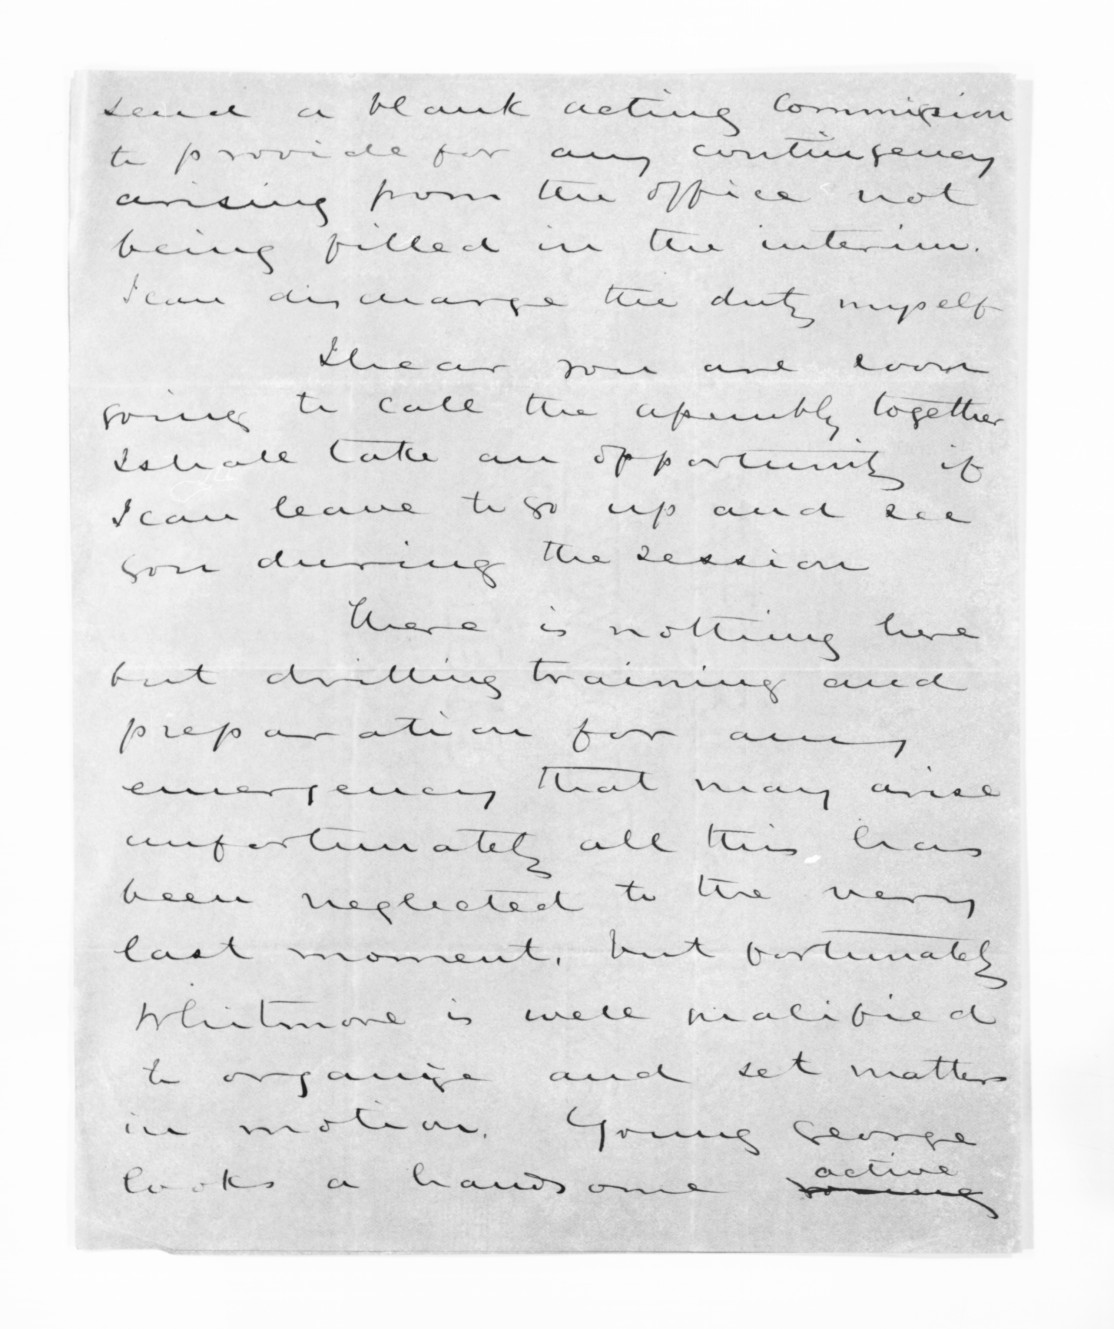 send a blank acting Commission
to provide for any contingency
arising from the office not
being filled in the interim.
I can discharge the duty myself
I hear you are soon
going to call the assembly together
I shall take an opportunity if
I can leave to go up and see
you during the session
There is nothing here
but drilling training and
preparation for any
emergency that may arise
unfortunately all this has
been neglected to the very
last moment. but fortunately
Whitmore is well qualified
to organize and set matters
in motion. Young George
looks a handsome active
young